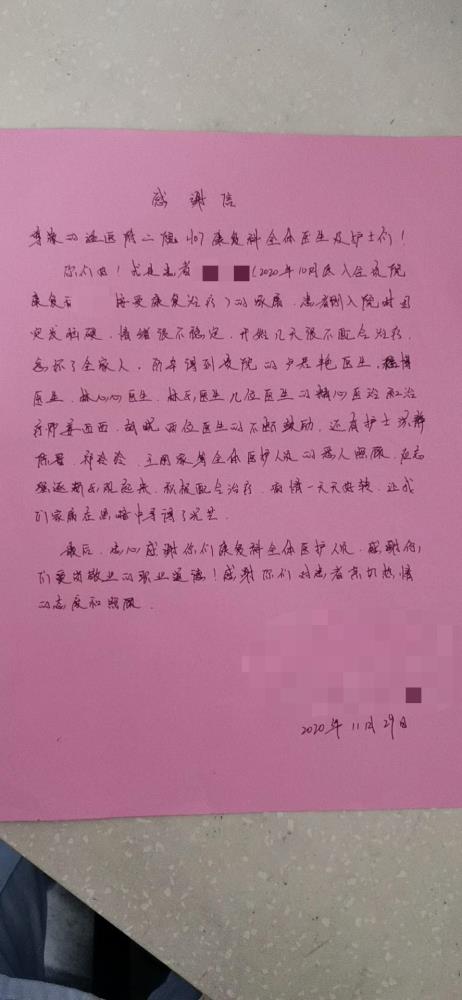 感谢信
尊敬的温医附二院407康复科全体医生及护士们！
你们好！我是患者（2020年10月底入住贵院
康复 接受康复治疗）的家属，患者刚入院时因
突发脑梗，情绪很不稳定，开始几天很不配合治疗，
急坏了全家人，所幸遇到贵院的 医生、
医生、林心心医生、林 医生几位医生的精心医治和治
疗师姜 两位医生的不断鼓励，还有护士
等全体医护人员的 照顾，
逐渐乐观起来，积极配合治疗，病情一天天好转，让我
们家属在黑暗中寻得了光芒。
最后，忠心感谢你们康复科全体医护人员，感谢你
们爱岗敬业的职业道德！感谢你们对患者亲切热情
的态度和照顾。
2020年11月29日